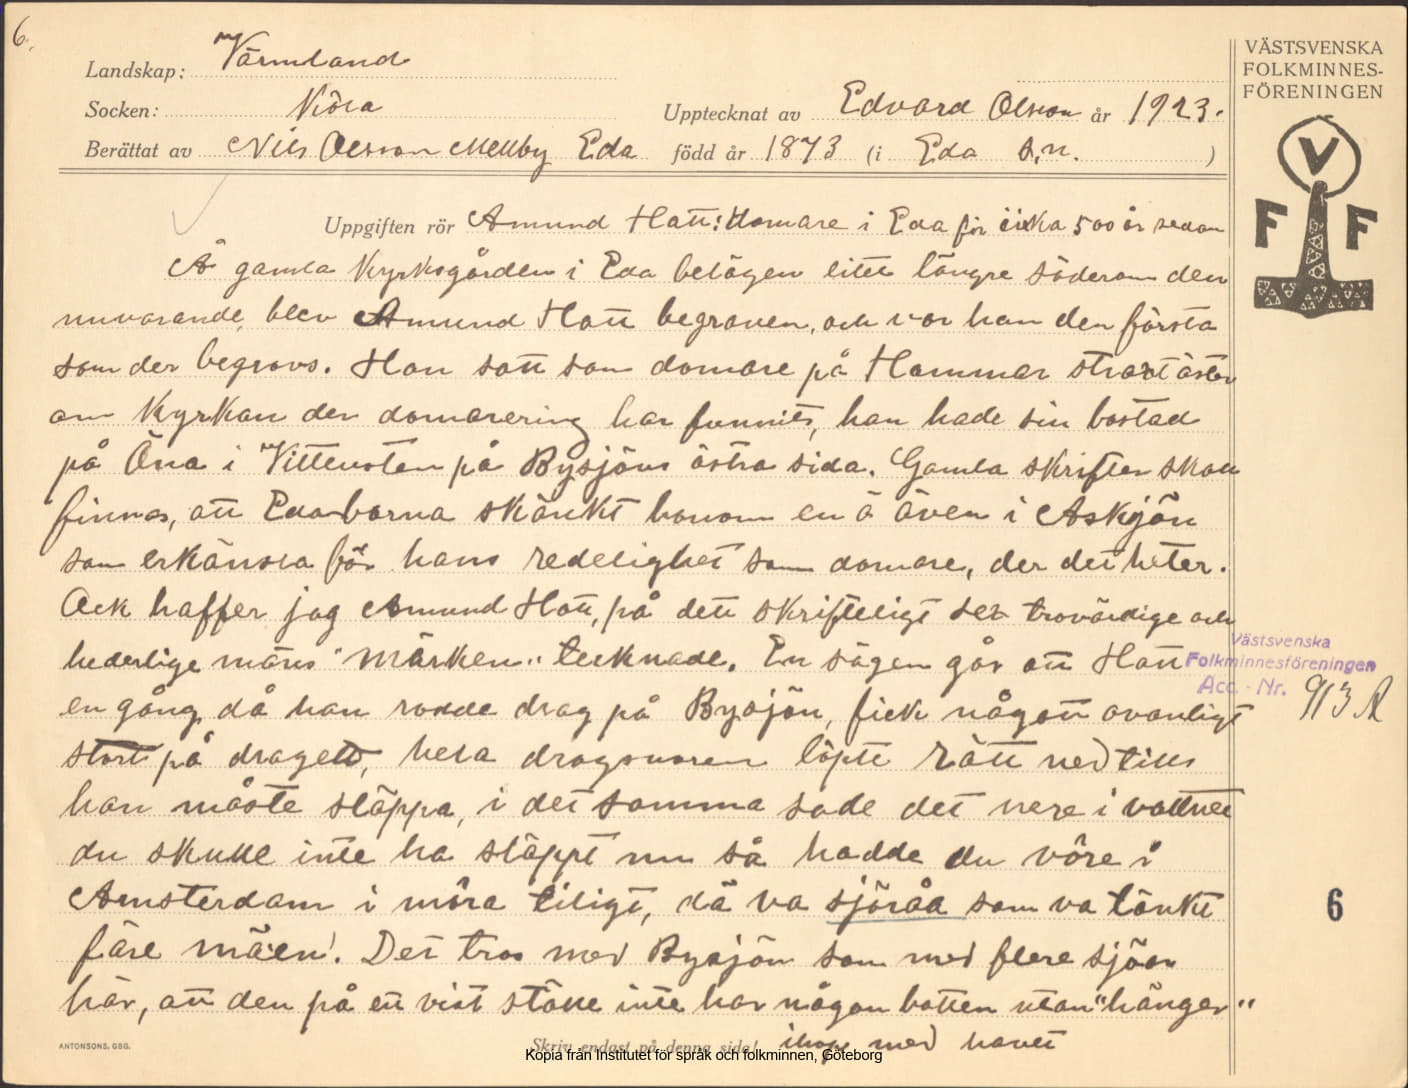 6.
Landskap: Värmland
Socken: Köla
Upptecknat av Edvard Olsson år 1923.
Berättat av Nils Olsson Mellby Eda född år 1873 (i Eda s,n. )
VÄSTSVENSKA
FOLKMINNES-
FÖRENINGEN
V
F F
Uppgiften rör Amund Hatt: domare i Eda för cirka 500 år sedan
Å gamla Kyrkogården i Eda belägen litet längre söderom den
nuvarande, blev Amund Hatt begraven, och var han den första
som der begrovs. Han satt som domare på Hammar strax öster
om Kyrkan der domarering har funnits, han hade sin bostad
på Öna i Vittensten på Bysjöns östra sida. Gamla skrifter skall
finnas, att Edaborna skänkt honom en ö även i Askjön
som erkänsla för hans redelighet som domare, der det heter.
Ock haffer jag Amund Hatt, på dett skrifteligt set trovärdige och
hederlige mäns "märken" tecknade. En sägen går att Hatt
en gång då han rodde drag på Bysjön, fick något ovanligt
stort på draget, hela dragsnoren löpte rätt ned tills
han måste släppa, i det samma sade det nere i vattnet
du skulle inte ha släppt nu så hadde du vôre i
Amsterdam i môra tiligt, dä va sjöråa som va tänkt
färe mäen! Det tros med Bysjön som med flere sjöar
här, att den på ett vist ställe inte har någon botten utan "hänger"
ihop med havet
Västsvenska
Folkminnesföreningen
Acc. - Nr. 913 A
6
ANTONSONS, GBG.
Skriv endast på denna sida!
Kopia från Institutet för språk och folkminnen, Göteborg